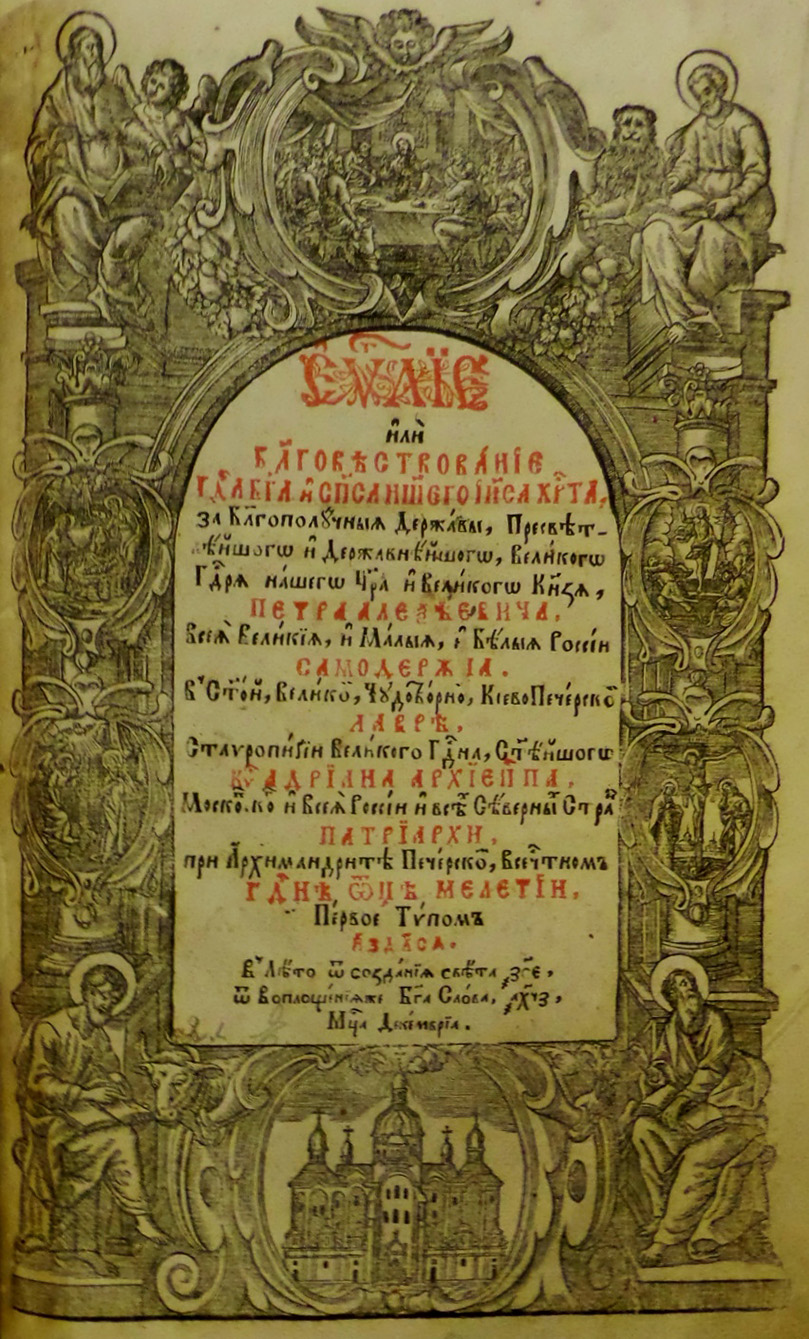 Еѵⷢ҇лїе
и҆лѝ
Бл҃говѣствова́нїе
Гдⷭ҇а Бг҃а и҆ Сп҃са на́шегѡ І҆и҃са Хрⷭ҇та̀,
За Бл҃гополꙋ́чныѧ Держа́вы, Пресвѣт-
лѣ́йшогѡ и҆ Держа́внѣйшогѡ, Вели́когѡ
Гдⷭ҇рѧ на́шегѡ Цр҃ѧ̀ и҆ Вели́когѡ Кнѧ́ѕѧ,
Петра А҆леѯѣевича,
Всеѧ̀ Вели́кїѧ, и҆ Ма́лыѧ, и҆ Бѣ́лыѧ Росси́и
Самоде́ржца.
В Ст҃о́й, Вели́коⷽ҇, Чꙋдотво́рноⷽ҇, Кїево Пече́рскоⷽ҇
Лаврѣ,
Ставропи́гїи Вели́кого Гдⷭ҇и́на, Ст҃ѣ́йшогѡ
Кѷ А҆дрїана а҆рхїепⷭ҇па,
Моско́вскоⷢ҇ и҆ Всеѧ̀ Росси́и и҆ всѣⷯ Сѣ́верныⷯ Страⷩ҇
Патрїархи,
при А҆рхимандри́тѣ Пече́рскоⷨ, Всечⷭ҇тномъ
Гдⷭ҇нѣ, Ѿцѣ, Мелетїи,
Пе́рвое Ти́помъ
И҆здасѧ.
В Лѣ́то ѿ созда́нїѧ свѣта ҂зсе҃,
ѿ воплоще́нїѧже Бг҃а Сло́ва, ҂ахчз,
Мцⷭ҇а Деке́мврїа.